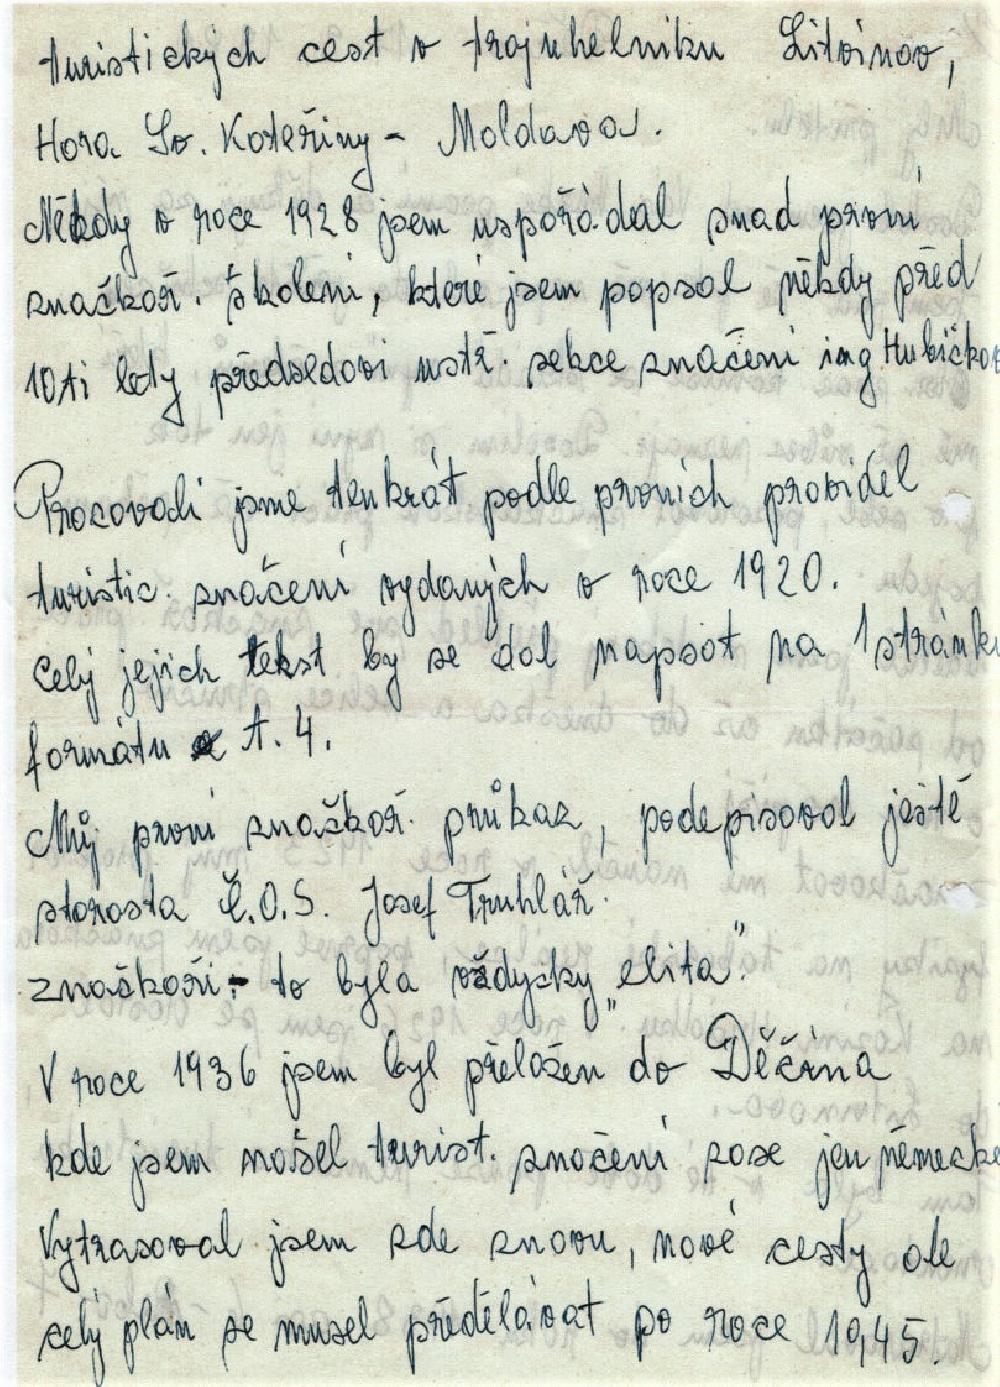 turistických cest v trojuhelniku Litvinov,
Hora Sv. Kateřiny - Moldava.
Někdy v roce 1928 jsem uspořádal snad první
značkoř. školeni, které jsem popsal někdy před
10ti lety předsedovi ustř. sekce značení ing Hubičkov
Pracovali jsme tenkrát podle prvních pravidel
turistic. značení vydaných v roce 1920.
Celý jejich tekst by se dal napsat na 1 stránk
formátu A.4.
Můj první značkař. průkaz, podepisoval ještě
starosta Č.O.S. Josef Truhlář.
značkaři - to byla vždycky "elita".
V roce 1936 jsem byl přeložen do Děčína
kde jsem našel turist. značení zase jen německé
Vytrasoval jsem zde znovu, nové cesty ale
celý plán se musel předělávat po roce 1945.